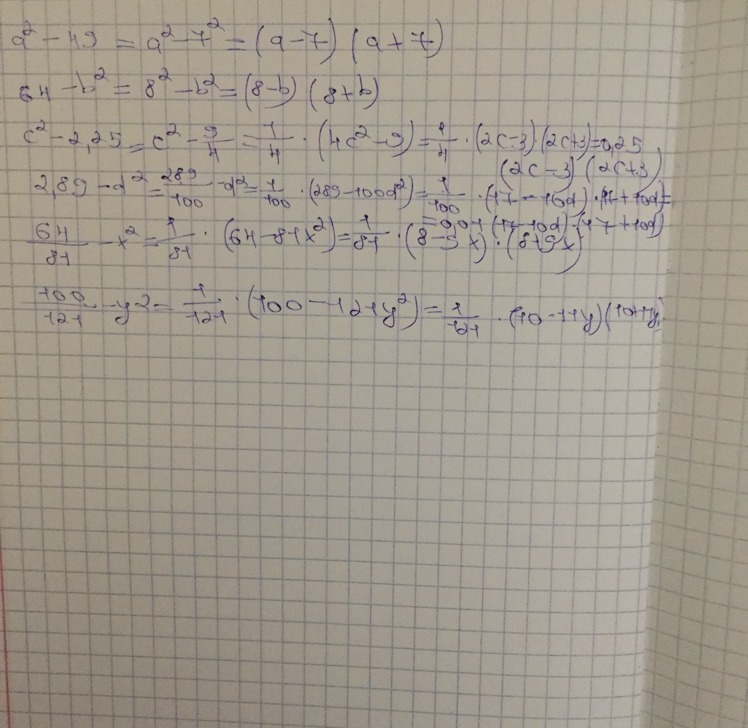 a² - 49 = a² - 7² = (a-7) (a+7)
64 - b² = 8² - b² = (8-b) (8+b)
c² - 2,25 = c² - 9/4 = 1/4 · (4c² - 9) = 1/4 · (2c-3)(2c+3) = 0,25
(2c-3) (2c+3)
2,89 - d² = 289/100 - d² = 1/100 · (289 - 100d²) = 1/100 · (17 - 10d) · (17 + 10d) =
= 0,01 (17-10d) · (17+10d)
64/81 - x² = 1/81 · (64 - 81x²) = 1/81 · (8 - 9x) · (8+9x)
100/121 - y² = 1/121 · (100 - 121y²) = 1/121 · (10 - 11y) (10+11y)